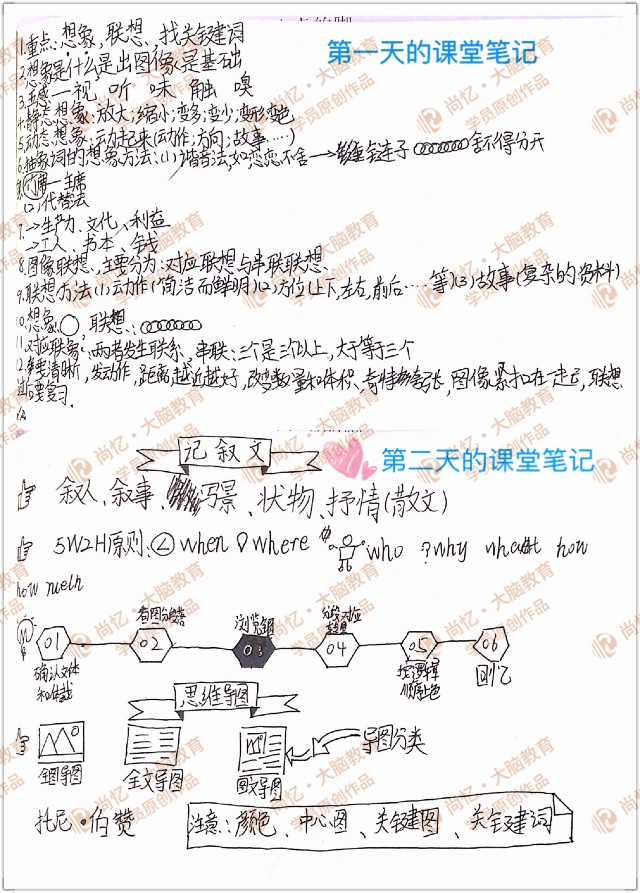 第一天的课堂笔记
1.重点:想象,联想、找关键词
2.想象是什么是出图像是基础
3.五感—视 听 味 触 嗅
4.静态想象:放大;缩小;变多;变少;变形;变色
5.动态想象:动起来(动作;方向;故事……)
6.抽象词的想象方法:(1)谐音法,如恋恋不舍→链子舍不得分天
—主席
(2)代替法
7.→生产力、文化、利益
→工人、书本、金钱
8.图像联想,主要分为:对应联想与串联联想
9.联想方法(1)动作(简洁而鲜明)(2)方位(上下,左右,前后……等)(3)故事(复杂的资料)
10.想象:○,联想:
11.对应联象:两者发生联系,串联:三个是三个以上,大于等于三个
12.要清晰,发动作,距离越近越好,改变数量和体积,奇特夸张,图像紧扣在一起,联想
要复习.
记叙文
第二天的课堂笔记
叙人、叙事、写景、状物、抒情(散文)
5W2H原则: when where who ?why what how
how
01 02 03 04 05 06
确认文体和 回忆
思维导图
全图导图 全文导图 图文导图 导图分类
托尼·伯赞
注意:颜色、中心图、关键图、关键词
尚忆·大脑教育
学员原创作品